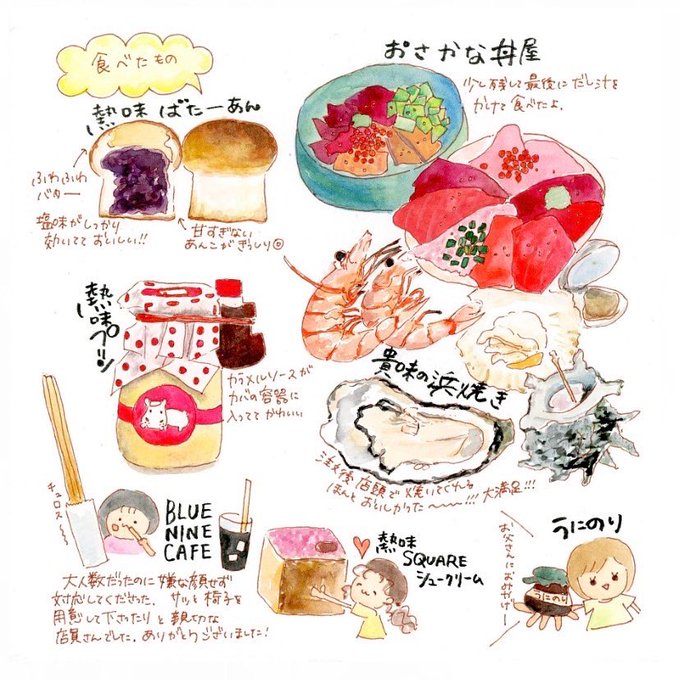 食べたもの
熱味 ばたーあん
ふわふわ
バター
塩味がしっかり
効いてて おいしい!!
甘すぎない
あんこがぎっしり
おさかな丼屋
少し残して最後にだし汁を
かけて食べたよ。
熱味プリン
カラメルソースが
カバの容器に
入ってて かわいい
貴味の浜焼き
注文後 店頭で 焼いてくれる
ほんと おいしかった〜〜!!! 大満足!!!
チュロス〜〜
BLUE
NINE
CAFE
大人数だったのに 嫌な顔せず
対応してくださった。サッと 椅子を
用意して下さったりと 親切な
店員さんでした。ありがとうございました!
熱味
SQUARE
シュークリーム
うにのり
お父さんにおみやげー
うにのり